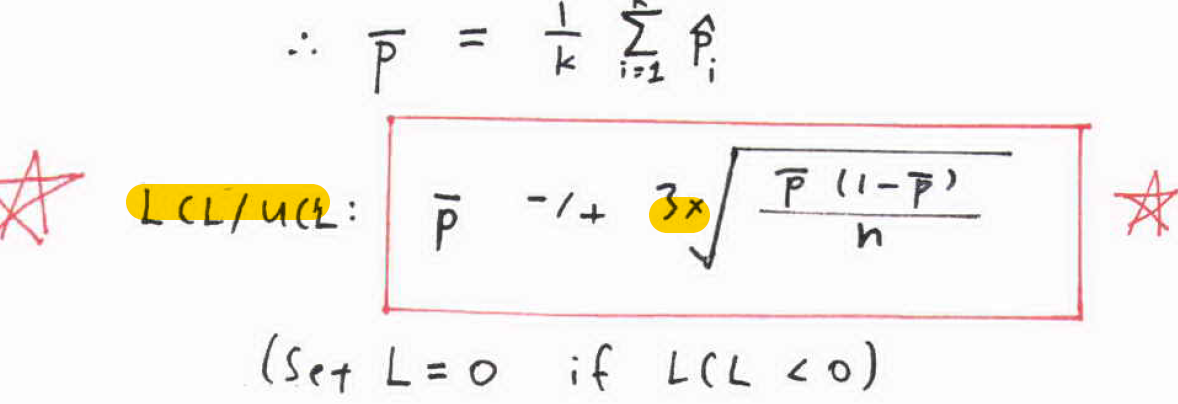 ∴ p̄ = 1/k Σ i=1 p̂i
LCL/UCL: p̄ -/+ 3×√(p̄ (1-p̄) / n)
(Set L = 0 if LCL < 0)